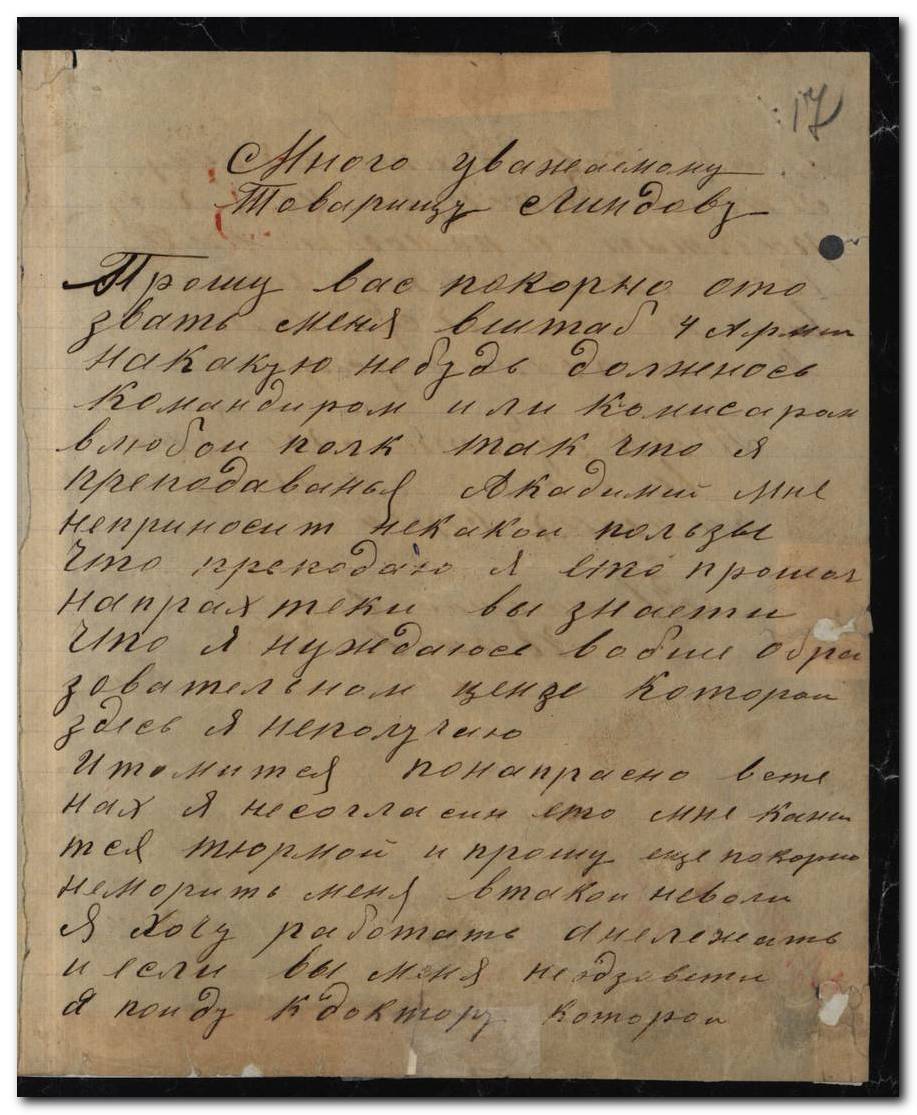 17
Много уважаемому
Товарищу Линдову
Прошу вас покорно ото
звать меня вштаб 4 Армии
накакую небудь должнось
командиром или комисаром
влюбои полк так что я
преподаванья Академий мне
неприносит некакои пользы
что преподаю я ето прошол
напрахтеки вы знаети
что я нуждаюсь вобше обра
зовательном цензе которои
здесь я неполучаю
итомится понапрасно встe
нах я несогласин ето мне кажи
тся тюрмой и прошу еще покорно
неморить меня втакои неволи
я хочу работать анележать
и если вы меня неодзовети
я поиду кдоктору которои